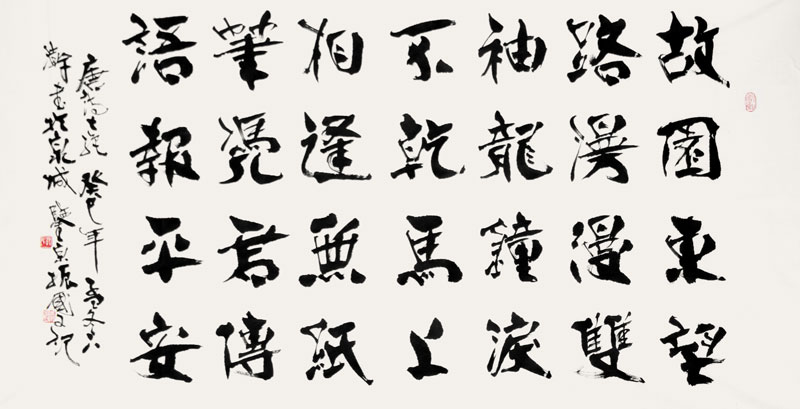 故園東望
路漫漫雙
袖龍鐘淚
不乾馬上
相逢無紙
筆憑君傳
語報平安
唐詩 癸巳年
書於泉城 振國又記